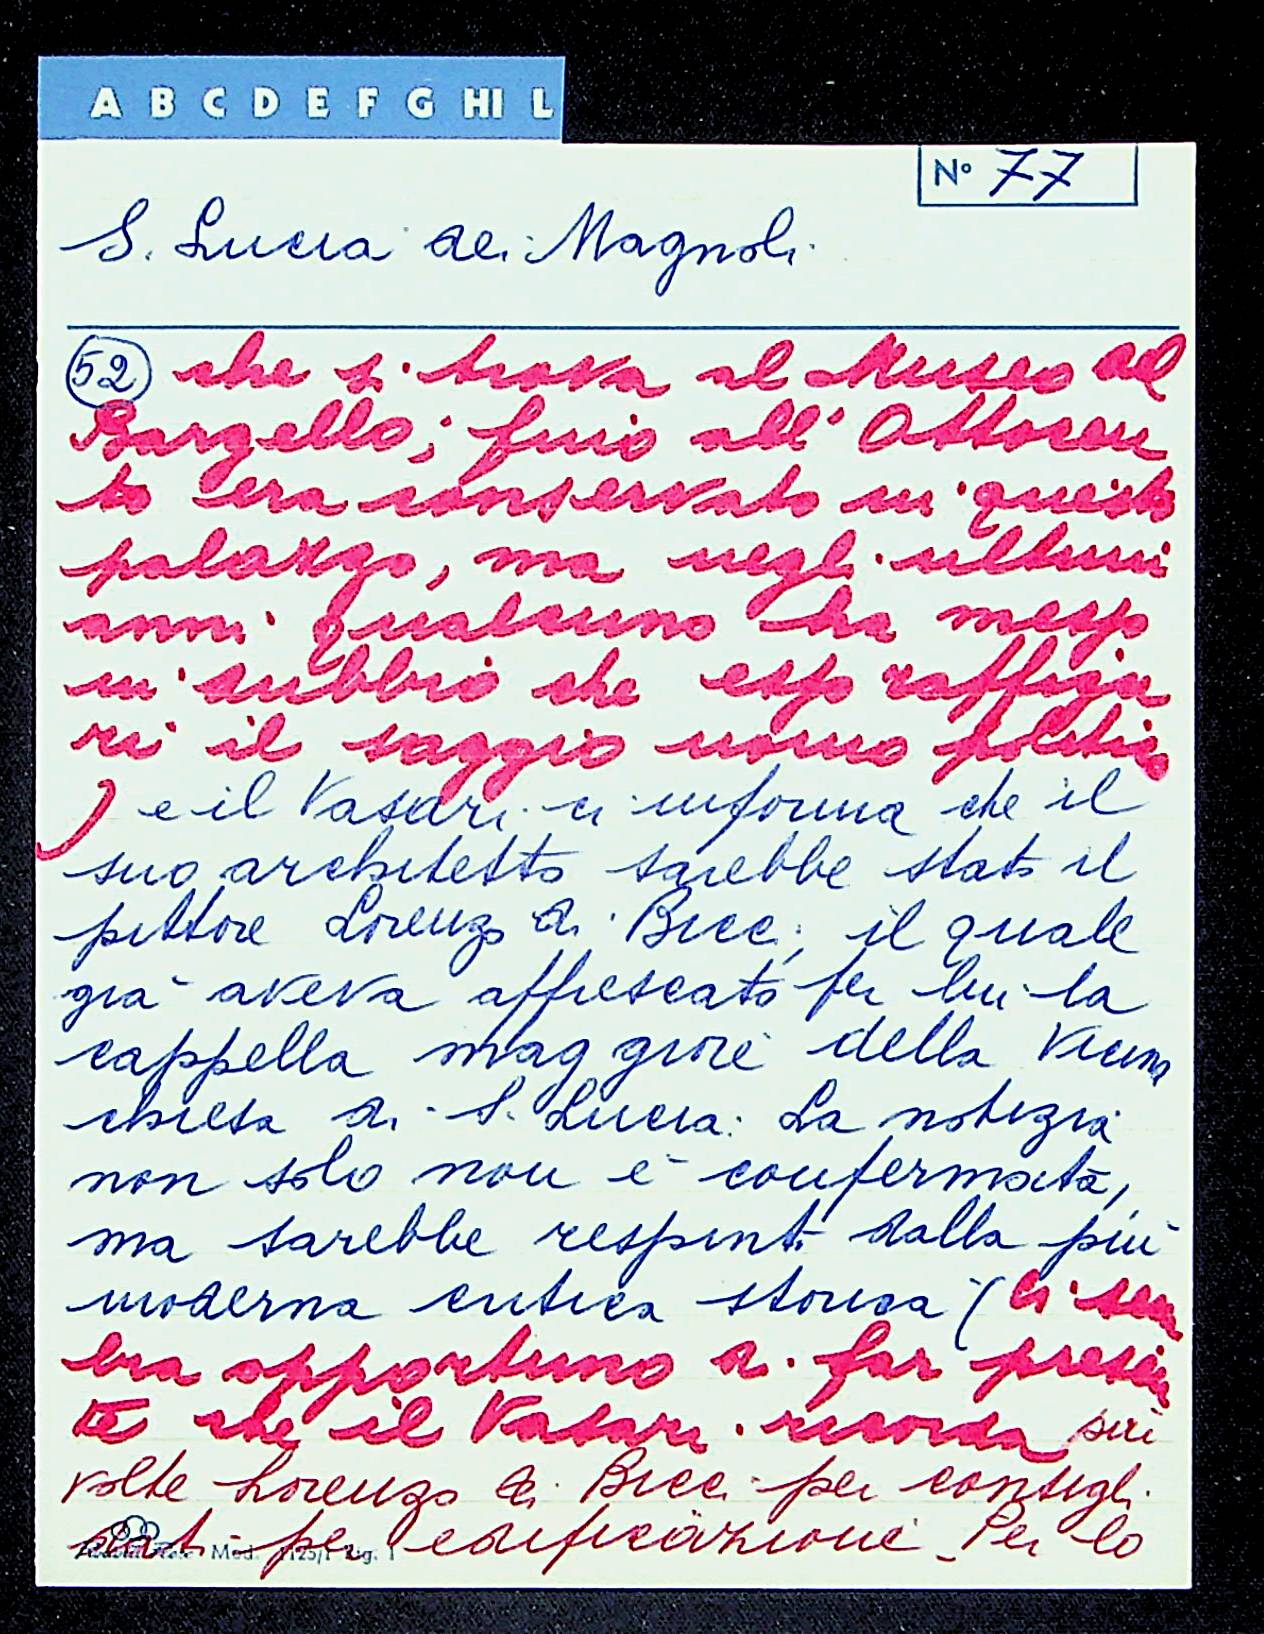 A B C D E F G HI L
N° 77
S. Lucia dei Magnoli
52 che si trova al Museo del
Bargello; fino all'Ottocen
to era conservato in questo
palazzo, ma negli ultimi
anni qualcuno ha messo
in dubbio che esso raffigu
ri il saggio uomo politico
) e il Vasari ci informa che il
suo architetto sarebbe stato il
pittore Lorenzo di Bicci, il quale
già aveva affrescato per lui la
cappella maggiore della vicina
chiesa di S. Lucia. La notizia
non solo non è confermata,
ma sarebbe respinta dalla più
moderna critica storica (ci sem
bra opportuno di far presen
te che il Vasari ricorda più
volte Lorenzo di Bicci per consigli
dati per edificazione. Per lo
Mod. 1125/1 Rig. 1